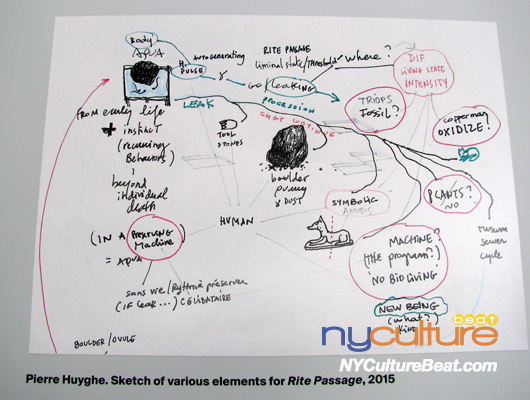 Body
AQUA
H2
PULSE
AUTOGENERATING
RITE PASSAGE
liminal state/threshold
where?
DIF
LIVING STATE
INTENSITY
GO/LEAKING
LEAK
PROCESSION
TRIOPS
FOSSIL?
COPPERMAN
OXIDIZE.
FROM early life
+ instinct
(remaining
Behaviors)
beyond
individual
death
TOOL
STONES
boulder
pumy
& DUST
SYMBOLIC
ANUBIS
PLANTS?
NO
HUMAN
museum
sewer
cycle
(IN A BREATHING
Machine)
= AQUA
MACHINE?
(the program?)
NO BIO LIVING
sans vie/Rythme préserver
(IF leak...) CÉLIBATAIRE
NEW BEING
(what?)
KIND
BOULDER/OVULE
nyculture
beat
NYCultureBeat.com
Pierre Huyghe. Sketch of various elements for Rite Passage, 2015